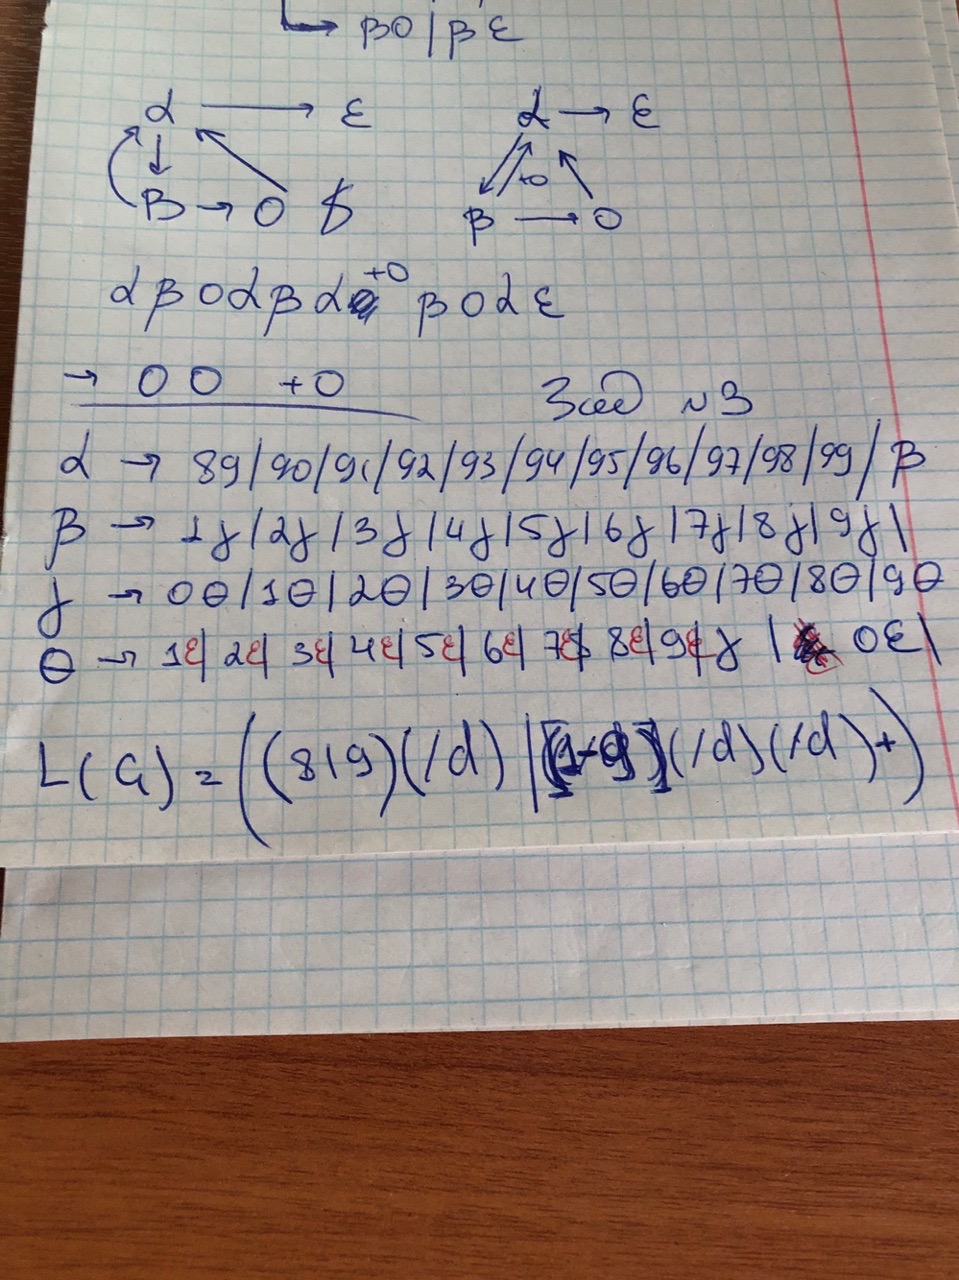 → βO | βε
α → ε α → ε
β → O +O
β → O
αβOαβα +O βOαε
→ OO +O Зад N3
α → 89/90/91/92/93/94/95/96/97/98/99/β
β → 1γ|2γ|3γ|4γ|5γ|6γ|7γ|8γ|9γ|
γ → 0θ|1θ|2θ|3θ|4θ|5θ|6θ|7θ|8θ|9θ
θ → 1ε| 2ε| 3ε| 4ε| 5ε| 6ε| 7ε| 8ε| 9ε| γ | 0ε|
L(G) = ((8|9)(/d) | [1-9](/d)(/d)+)